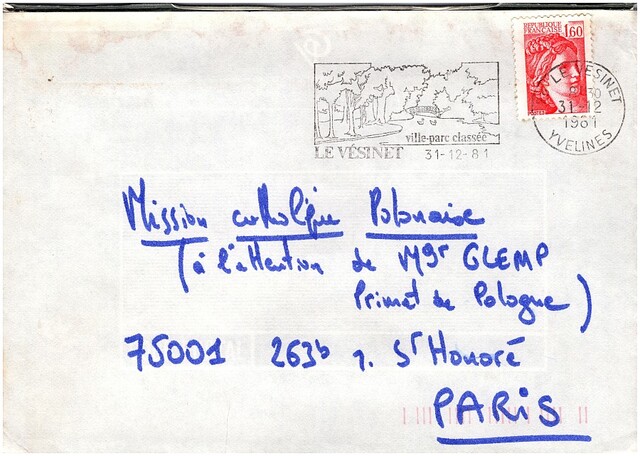 REPUBLIQUE FRANCAISE 1,60
ville-parc classée
LE VÉSINET 31-12-81
LE VESINET
31-12
1981
YVELINES
Mission catholique Polonaise
(à l'attention de Mgr GLEMP
Primat de Pologne)
75001 263b r. St Honoré
PARIS